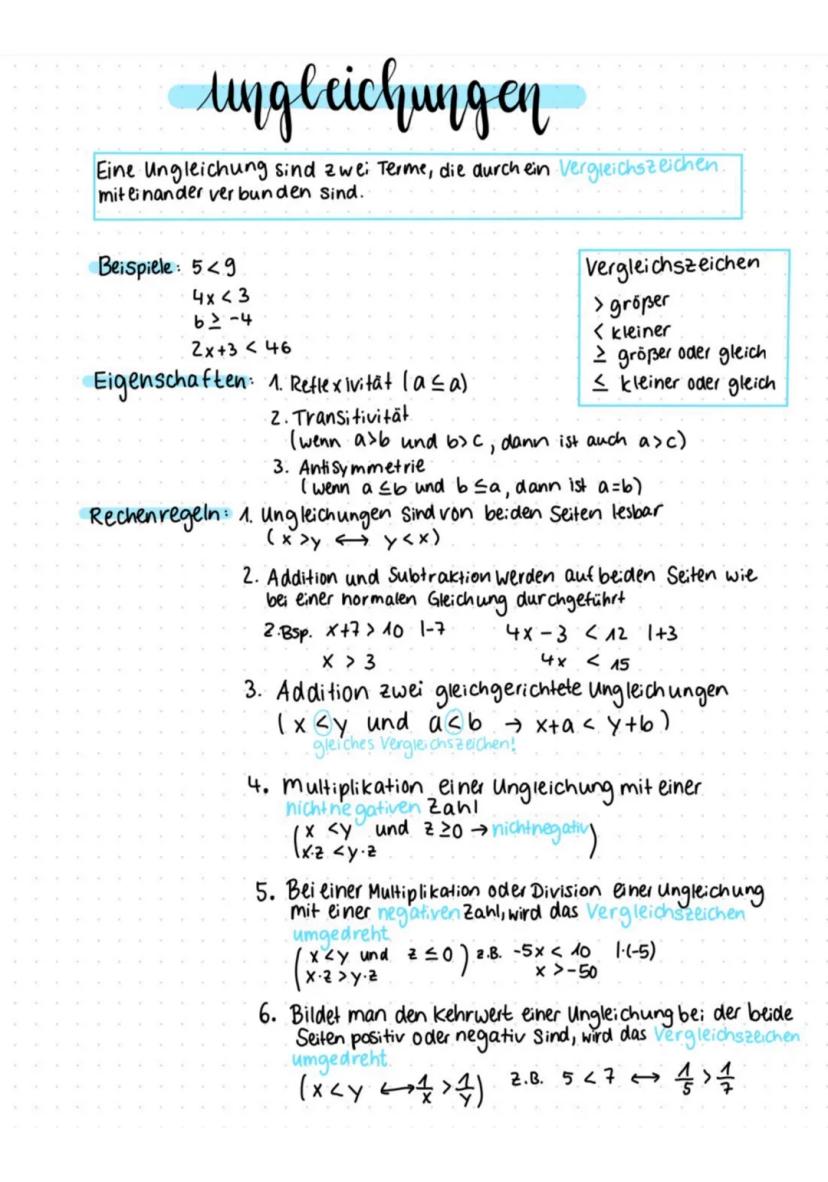 Ungleichungen
Eine Ungleichung sind zwei Terme, die durch ein Vergleichszeichen
miteinander verbunden sind.
Beispiele: 5 < 9
4x < 3
b ≥ -4
2x+3 < 46
Vergleichszeichen
> größer
< kleiner
≥ größer oder gleich
≤ kleiner oder gleich
Eigenschaften: 1. Reflexivität (a ≤ a)
2. Transitivität
(wenn a>b und b>c, dann ist auch a>c)
3. Antisymmetrie
(wenn a ≤ b und b ≤ a, dann ist a=b)
Rechenregeln: 1. Ungleichungen sind von beiden Seiten lesbar
(x > y ↔ y < x)
2. Addition und Subtraktion werden auf beiden Seiten wie
bei einer normalen Gleichung durchgeführt
z.Bsp. x+7 > 10 |-7 4x - 3 < 12 |+3
x > 3 4x < 15
3. Addition zwei gleichgerichtete Ungleichungen
(x < y und a < b → x+a < y+b)
gleiches Vergleichszeichen!
4. Multiplikation einer Ungleichung mit einer
nichtnegativen Zahl
(x < y und z ≥ 0 → nichtnegativ)
x·z < y·z
5. Bei einer Multiplikation oder Division einer Ungleichung
mit einer negativen Zahl, wird das Vergleichszeichen
umgedreht
(x < y und z ≤ 0) z.B. -5x < 10 |·(-5)
x·z > y·z x > -50
6. Bildet man den Kehrwert einer Ungleichung bei der beide
Seiten positiv oder negativ sind, wird das Vergleichszeichen
umgedreht
(x < y ↔ 1/x > 1/y) z.B. 5 < 7 ↔ 1/5 > 1/7